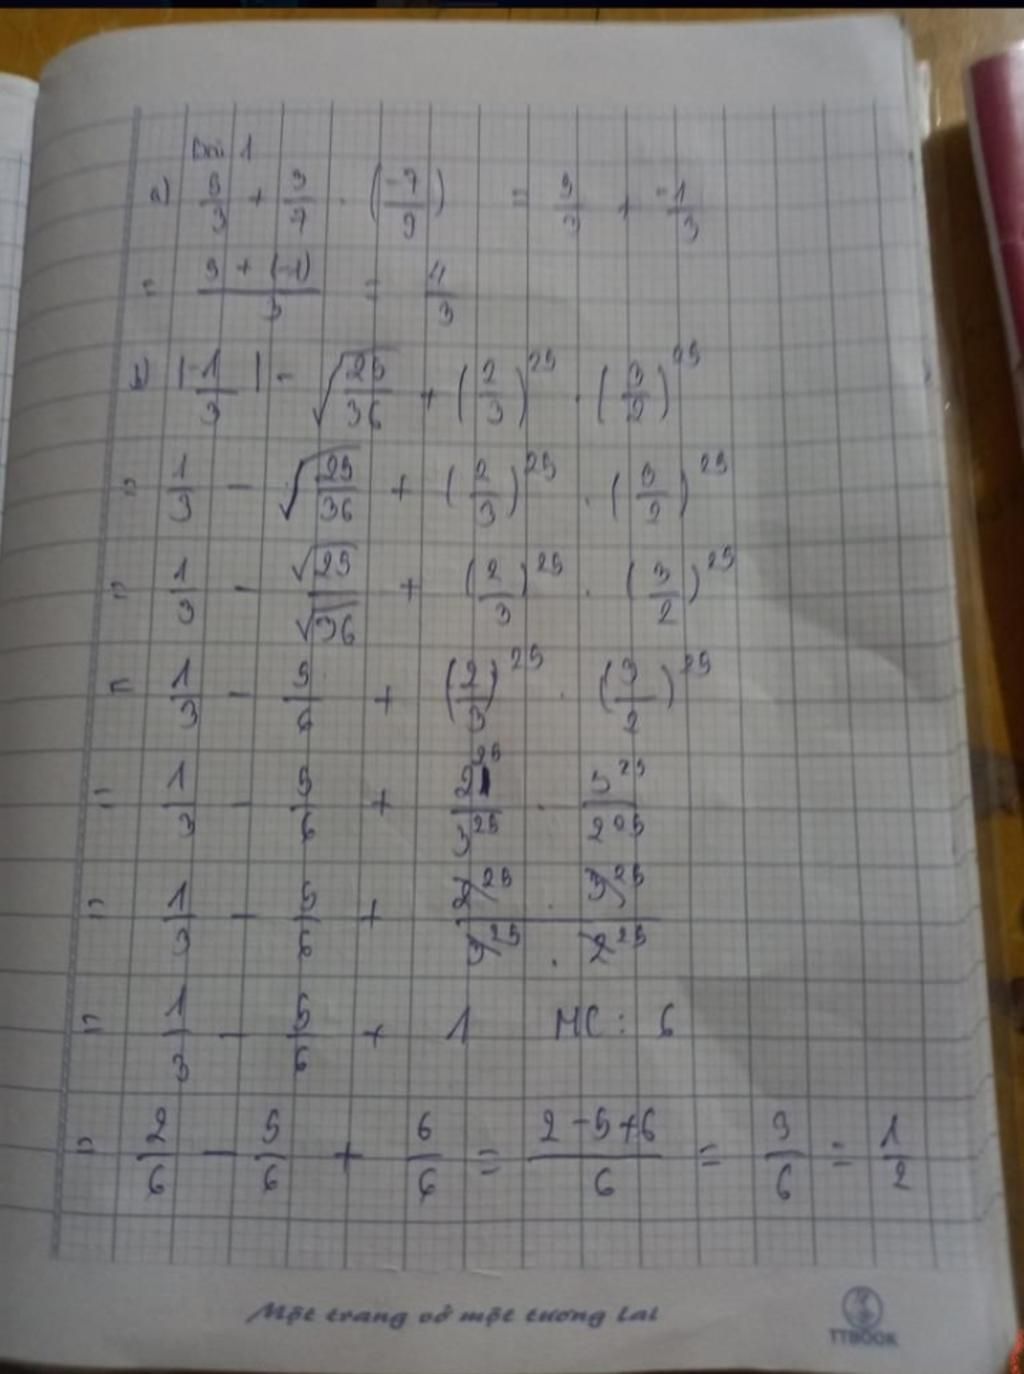 Bài 1
a) 5/3 + 3/7 . (-7/9) = 5/3 + -1/3
= 5 + (-1)/3 = 4/3
b) |-1/3| - √25/36 + (2/3)^25 . (3/2)^25
= 1/3 - √25/36 + (2/3)^25 . (3/2)^25
= 1/3 - √25/√36 + (2/3)^25 . (3/2)^25
= 1/3 - 5/6 + (2/3)^25 . (3/2)^25
= 1/3 - 5/6 + 2^25/3^25 . 3^25/2^25
= 1/3 - 5/6 + 2^25 . 3^25/3^25 . 2^25
= 1/3 - 5/6 + 1 MC: 6
= 2/6 - 5/6 + 6/6 = 2-5+6/6 = 3/6 = 1/2
Một trang vở một tương lai
TTBOOK